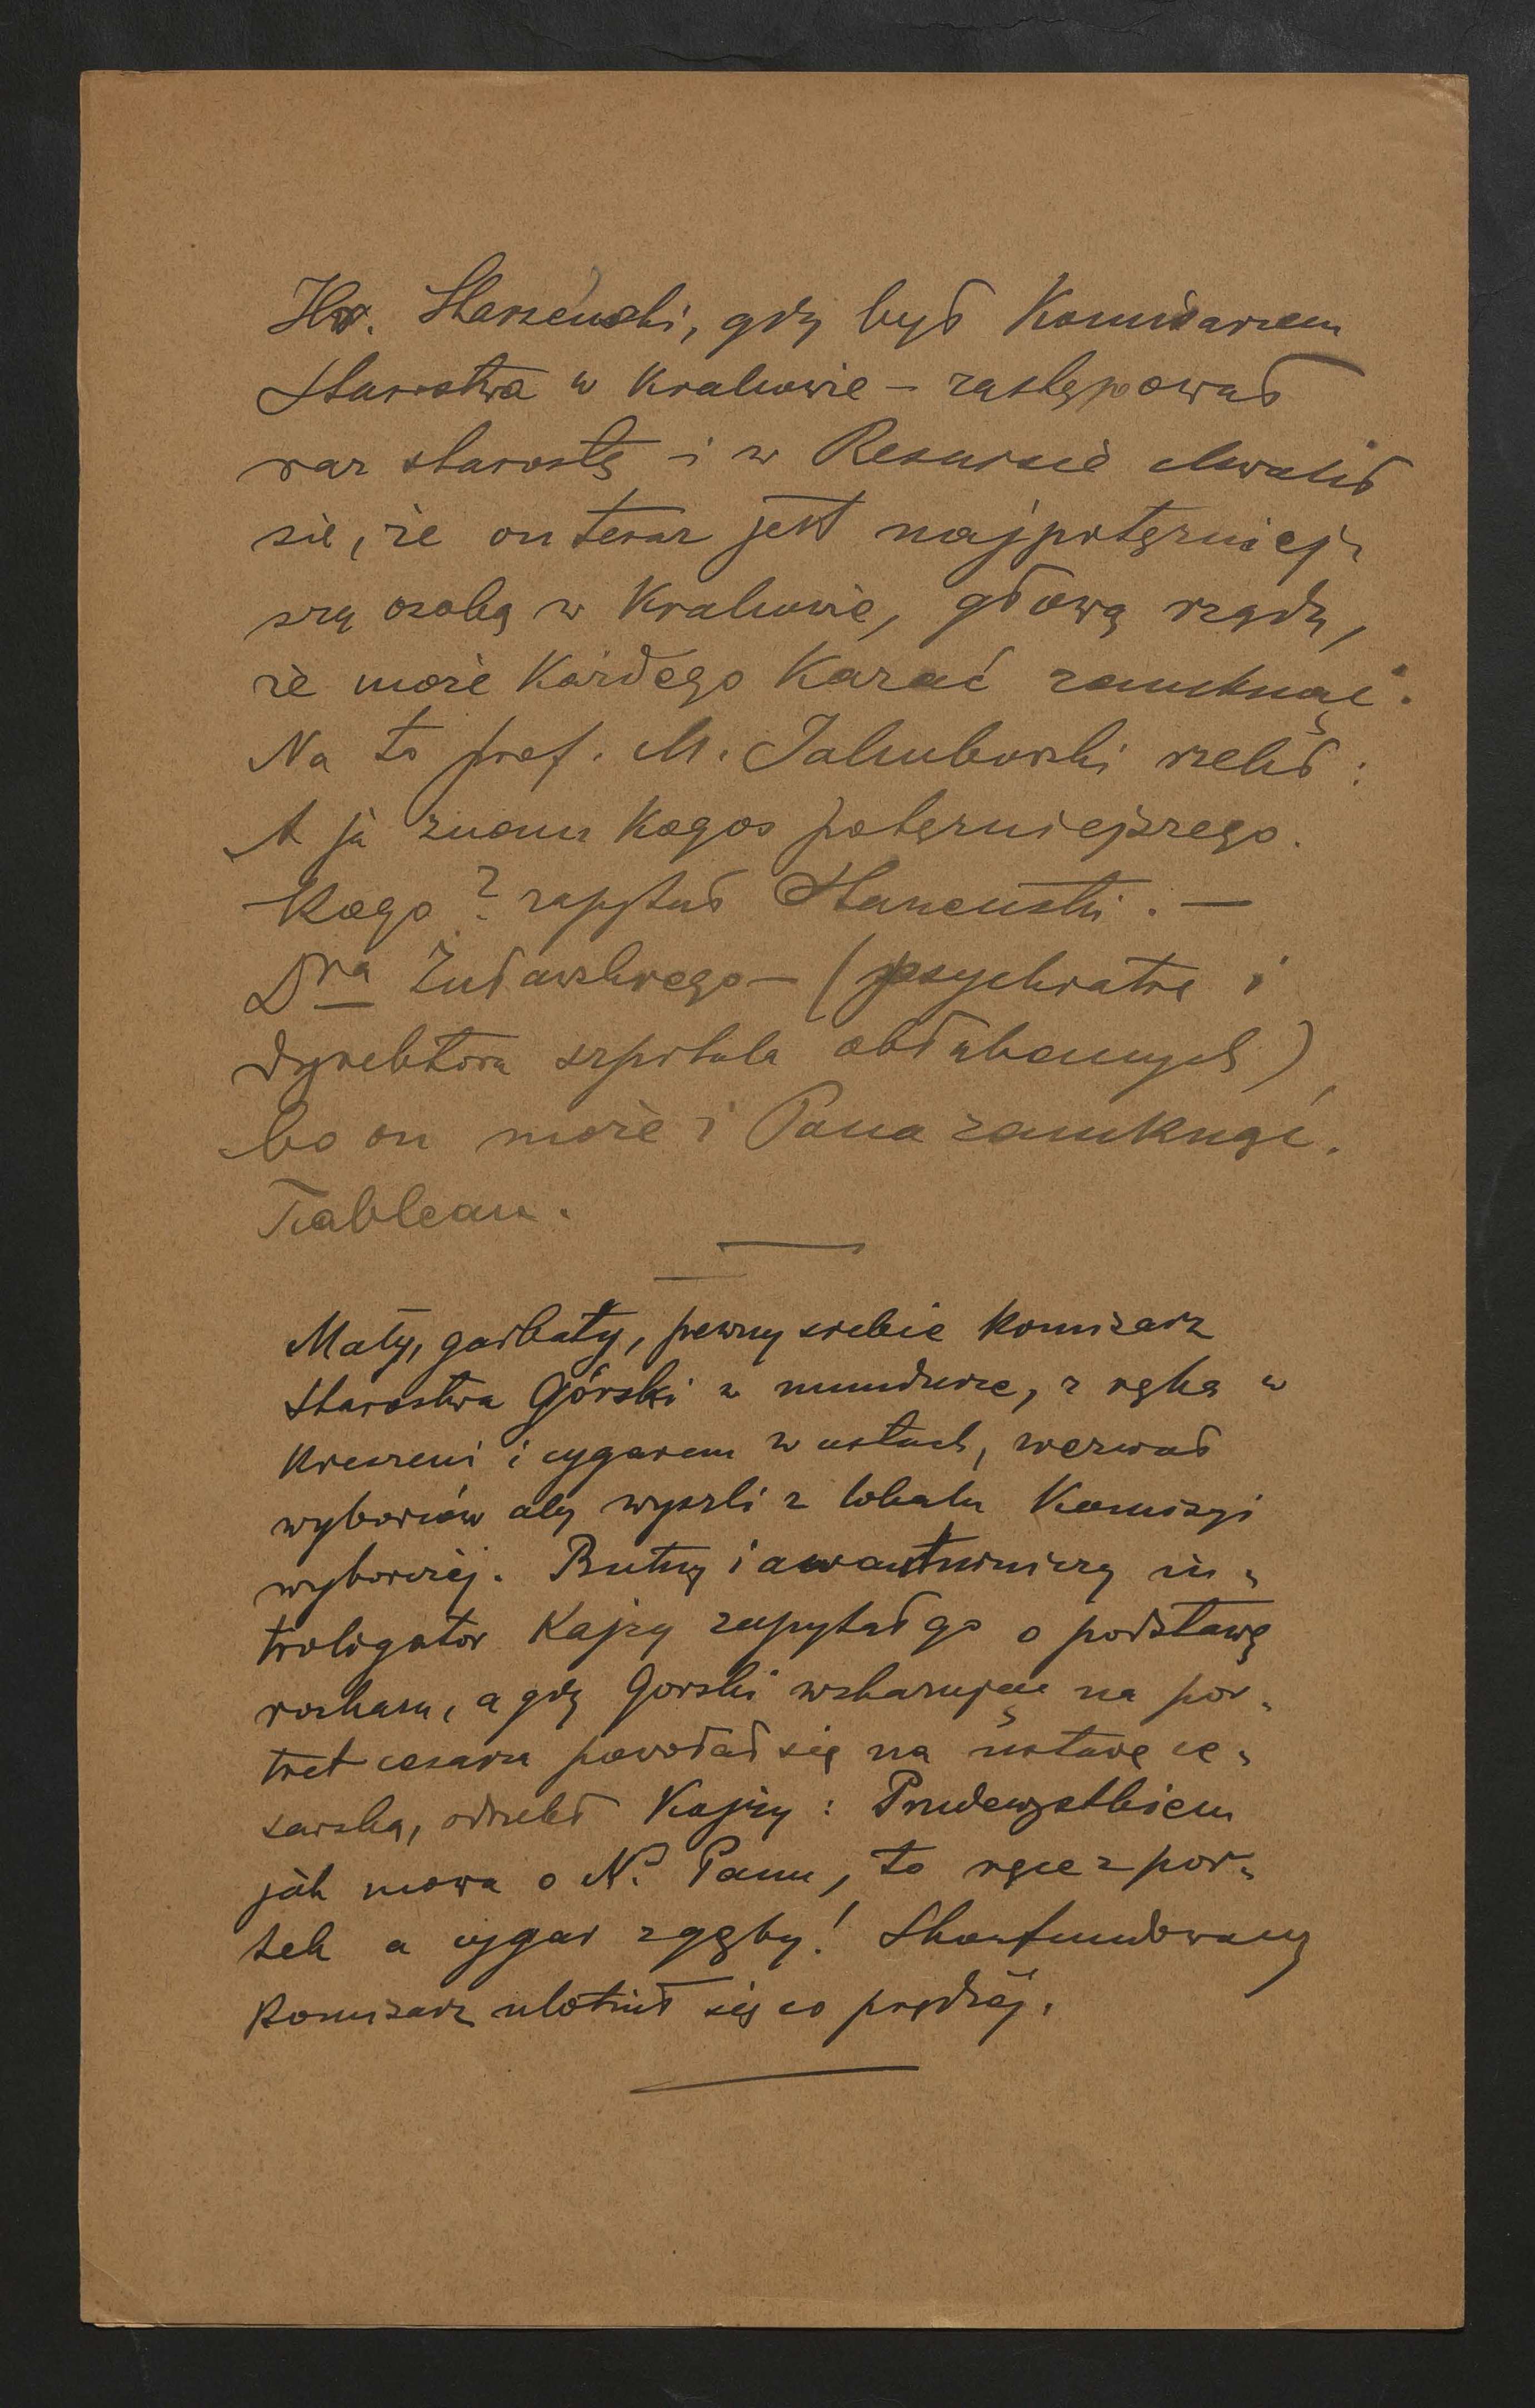 Hr. Starzeński, gdy był Komisarzem
Starostwa w Krakowie – zastępował
raz starostę i w Resursie chwalił
się, że on teraz jest najpotężniej-
szą osobą w Krakowie, głową rządu,
że może każdego kazać zamknąć.
Na to prof. M. Jakubowski rzekł:
A ja znam kogoś potężniejszego.
Kogo? zapytał Starzeński. –
Dra Żuławskiego – (psychiatrę i
dyrektora szpitala obłąkanych)
bo on może i Pana zamknąć.
Tableau.
Mały, garbaty, pewny siebie komisarz
Starostwa Górski w mundurze, z ręką w
kieszeni i cygarem w ustach, wezwał
wyborców aby wyszli z lokalu Komisyi
wyborczej. Butny i awanturniczy in-
troligator Kajzy zapytał go o podstawę
rozkazu, a gdy Gorski wskazując na por-
tret cesarza powołał się na ustawę ce-
sarską, odrzekł Kajzy: Przedewszystkiem
jak mowa o N. Panu, to ręce z por-
tek a cygar z gęby! Skonfundowany
Komisarz ulotnił się co prędzej.